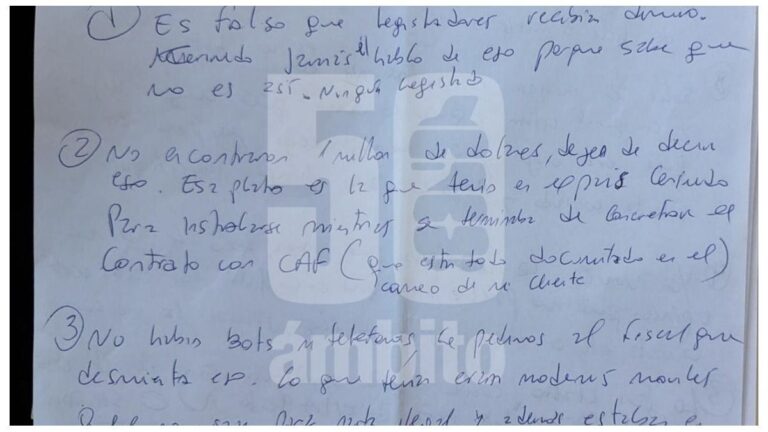 ① Es falso que legisladores recibían dinero.
jamás él habló de eso porque sabe que
no es así. Ningún legislador
② No encontraron 1 millon de dolares, dejen de decir
eso. Esa plata es la que tenia en el pais
Para instalarse mientras se terminaba de concretar el
Contrato con CAF (que esta todo documentado en el)
correo de mi cliente
③ No habia Bots ni telefonos le pedimos al fiscal que
desmienta eso. Lo que tenía eran modems moviles
para y ademas estaban
50
AÑOS
ámbito